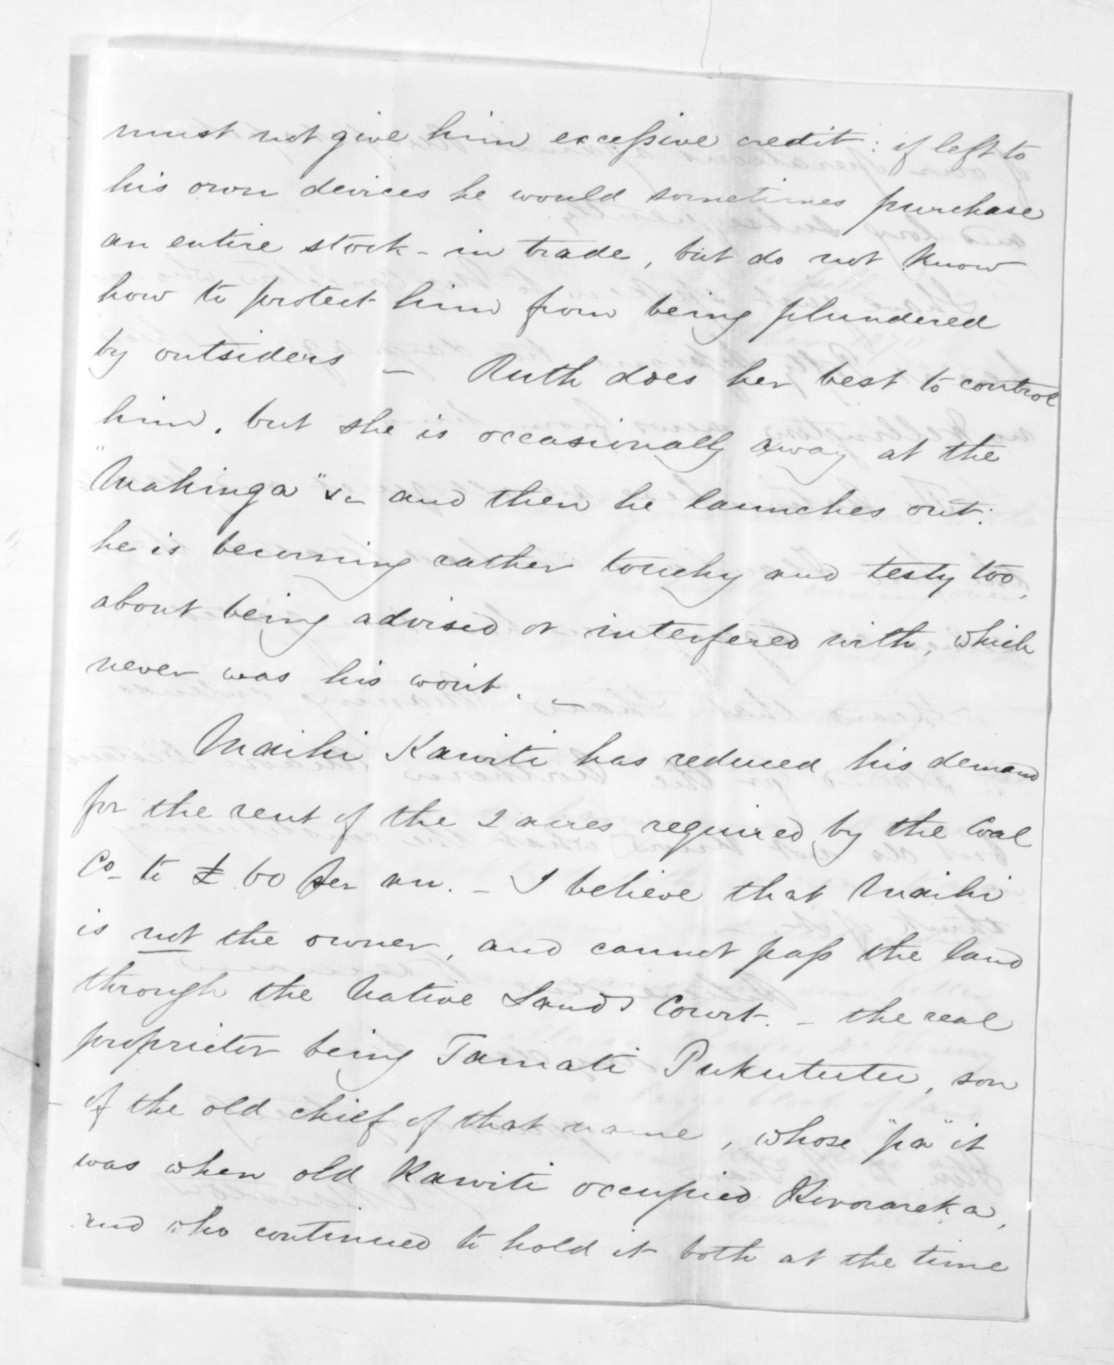 must not give him excessive credit: if left to
his own devices he would sometimes purchase
an entire stock-in trade, but do not know
how to protect him from being plundered
by outsiders — Ruth does her best to control
him, but she is occasionally away at the
"Mahinga" &c and then he launches out:
he is becoming rather touchy and testy too,
about being advised or interfered with, which
never was his wont. —
Maihi Kawiti has reduced his demand
for the rent of the 2 acres required by the Coal
Co- to £60 per an. - I believe that Maihi
is not the owner, and cannot pass the land
through the Native Lands Court. - the real
proprietor being Tamati Pukututu, son
of the old chief of that name, whose "pa" it
was when old Kawiti occupied
and who continued to hold it both at the time